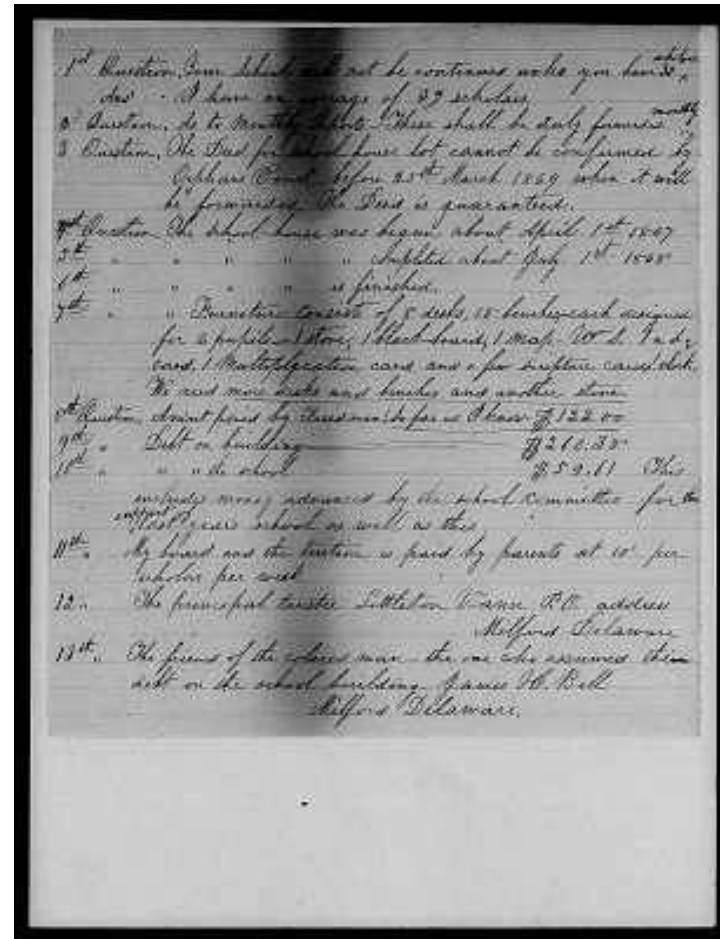 1st Question, Your School will not be continued unless you have 30 scholars
Ans - I have an average of 39 scholars
2d Question, As to Monthly Reports - These shall be duly forwarded monthly
3 Question, The Deed for school house lot cannot be confirmed by
Orphans Court before 25th March 1869 when it will
be forwarded. The Deed is guaranteed.
4th Question The school house was begun about April 1st 1867
5th " " " " " Completed about July 1st 1868
6th " " " " is finished.
7th " " Furniture consists of 8 desks, 18 benches each designed
for pupils - 1 stove, 1 black-board, 1 Map. U. S. 1
card, 1 Multiplication card and a few scripture cards
We need more desks and benches and another stove
8th Question, Amount paid by so far as I know $122.00
9th " Debt on building $210.38
10th " " " the school $59.11 This
includes money advanced by the school committee for the
support of last years school as well as this
11th " My board and the tuition is paid by parents at 10c per
scholar per week
12 " The principal trustee Littleton Vann P.O. address
Milford Delaware
13th " The friend of the colored man - the one who assumed the
debt on the school building James H. Bell
Milford Delaware.